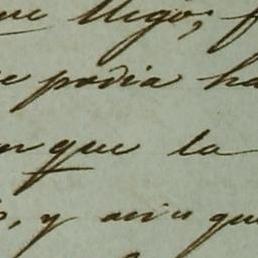 ue llegó, f
e podia ha
n que la
, y aun qu